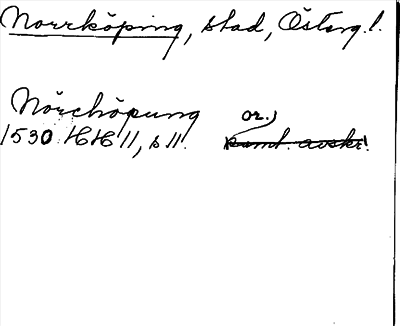 Norrköping, stad, Österg.l.
Nörchöpung or.)
1530 HH 11, s 11. samt. avskr!